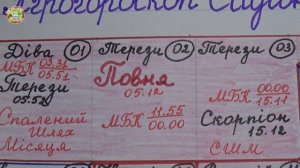 Діва 01
МБК 03.31
05.51
Терези
05.52
Спалений
Шлях
Місяця
Терези 02
Повня
05.12
МБК 11.55
00.00
Терези 03
МБК 00.00
15.11
Скорпіон
15.12
СШМ